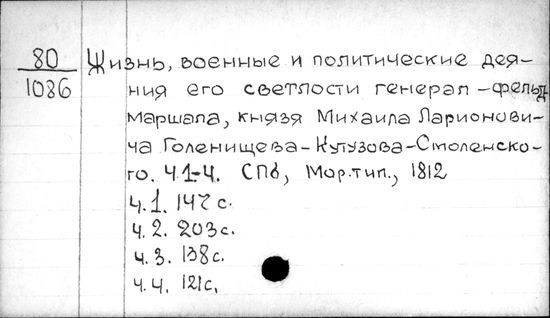 80 Жизнь, военные и политические дея-
1086 ния его светлости генерал-фельд-
маршала, князя Михаила Ларионови-
ча Голенищева-Кутузова-Смоленско-
го. Ч.1-4. СПб, Мор.тип., 1812
ч.1. 147 с.
ч.2. 203 с.
ч.3. 138 с.
ч.4. 121 с.